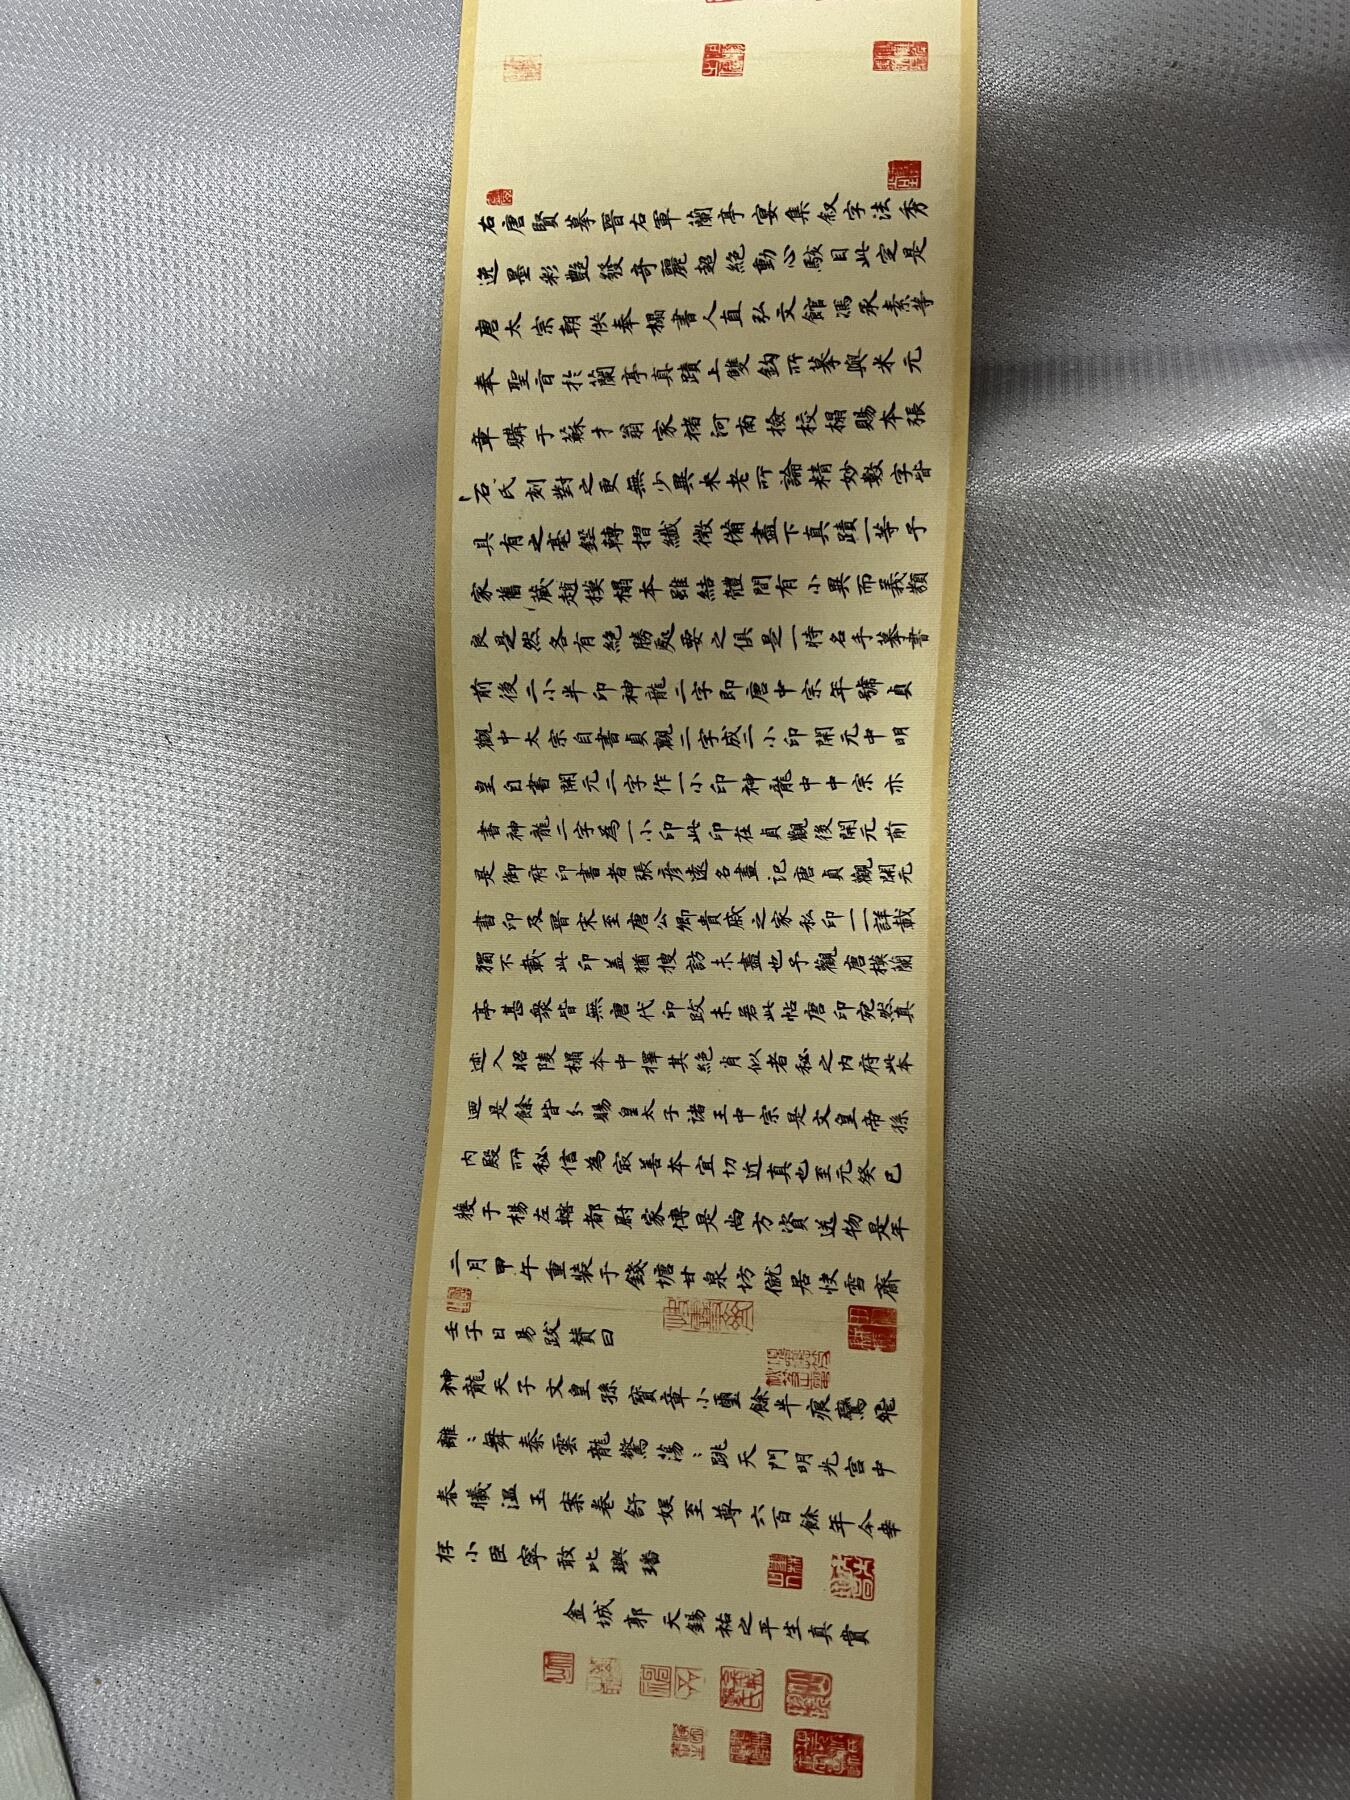 右唐賢摹晉右軍蘭亭宴集叙字法秀
逸墨彩艶發奇麗超絶動心駭目此定是
唐太宗朝供奉榻書人直弘文館馮承素等
奉聖旨於蘭亭真蹟上雙鈎所摹與米元
章購于蘇才翁家褚河南撿校榻賜本張
石氏刻對之更無少異米老所論精妙數字皆
具有之毫鋩轉摺纖微備盡下真蹟一等予
家舊藏趙模榻本雖結體間有小異而義類
良是然各有絶勝處要之俱是一時名手摹書
前後二小半印神龍二字即唐中宗年號貞
觀中太宗自書貞觀二字成二小印開元中明
皇自書開元二字作一小印神龍中中宗亦
書神龍二字為一小印此印在貞觀後開元前
是御府印書者張彦遠名畫記唐貞觀開元
書印及晉宋至唐公卿貴戚之家私印一一詳載
獨不載此印盖猶搜訪未盡也予觀唐模蘭
亭甚衆皆無唐代印跋未若此帖唐印宛然真
迹入昭陵榻本中擇其絶肖似者秘之内府此本
廼是餘皆分賜皇太子諸王中宗是文皇帝孫
内殿所秘信為㝡善本宜切近真也至元癸巳
獲于楊左轄都尉家傳是尚方資送物是年
二月甲午重装于錢塘甘泉坊僦居快雪齋
壬子日易跋賛曰
神龍天子文皇孫寳章小璽餘半痕鸞飛
離〻舞秦雲龍驚蕩〻跳天門明光宫中
春曦温玉案卷舒娱至尊六百餘年今幸
存小臣寧敢比璵璠
金城郭天錫祐之平生真賞